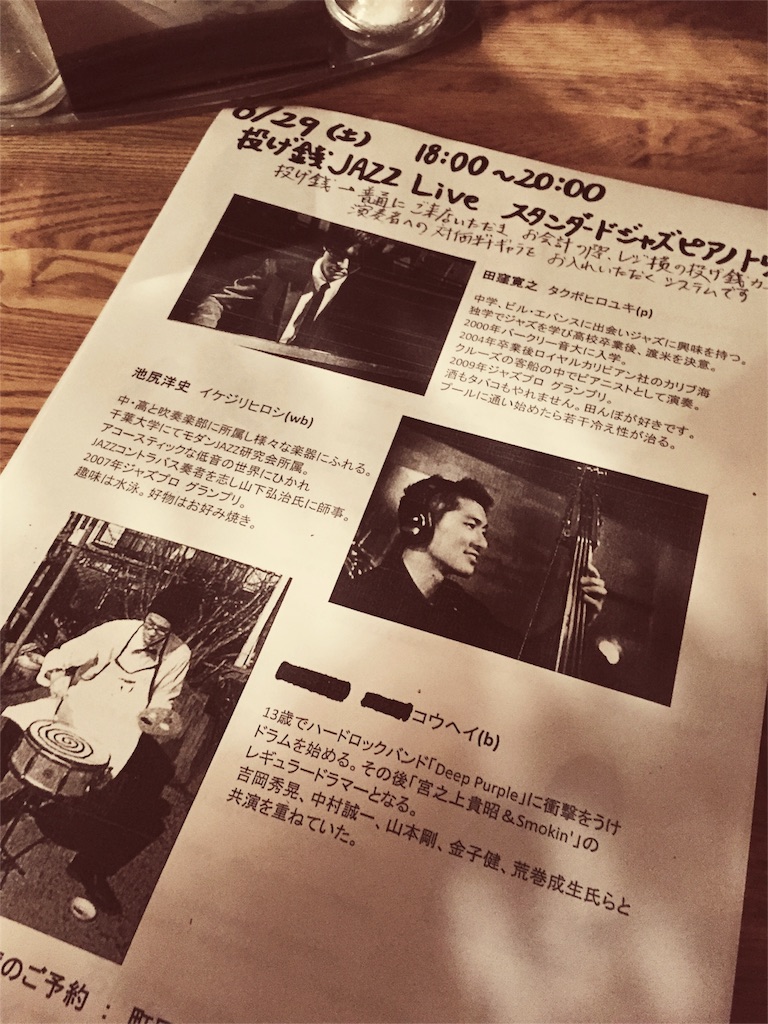 6/29(土) 18:00~20:00
投げ銭 JAZZ Live スタンダードジャズピアノトリ
投げ銭→普通にご来店いただき お会計の際、レジ横の投げ銭カ
演奏者への対価 ギャラを お入れいただくシステムです
田窪寛之 タクボヒロユキ(p)
中学、ビル・エバンスに出会いジャズに興味を持つ。
独学でジャズを学び高校卒業後、渡米を決意。
2000年バークリー音大に入学。
2004年卒業後ロイヤルカリビアン社のカリブ海
クルーズの客船の中でピアニストとして演奏。
2009年ジャズプロ グランプリ。
酒もタバコもやれません。田んぼが好きです。
プールに通い始めたら若干冷え性が治る。
池尻洋史 イケジリヒロシ(wb)
中・高と吹奏楽部に所属し様々な楽器にふれる。
千葉大学にてモダンJAZZ研究会所属。
アコースティックな低音の世界にひかれ
JAZZコントラバス奏者を志し山下弘治氏に師事。
2007年ジャズプロ グランプリ。
趣味は水泳。好物はお好み焼き。
コウヘイ(b)
13歳でハードロックバンド「Deep Purple」に衝撃をうけ
ドラムを始める。その後「宮之上貴昭&Smokin'」の
レギュラードラマーとなる。
吉岡秀晃、中村誠一、山本剛、金子健、荒巻成生氏らと
共演を重ねていた。
のご予約:町